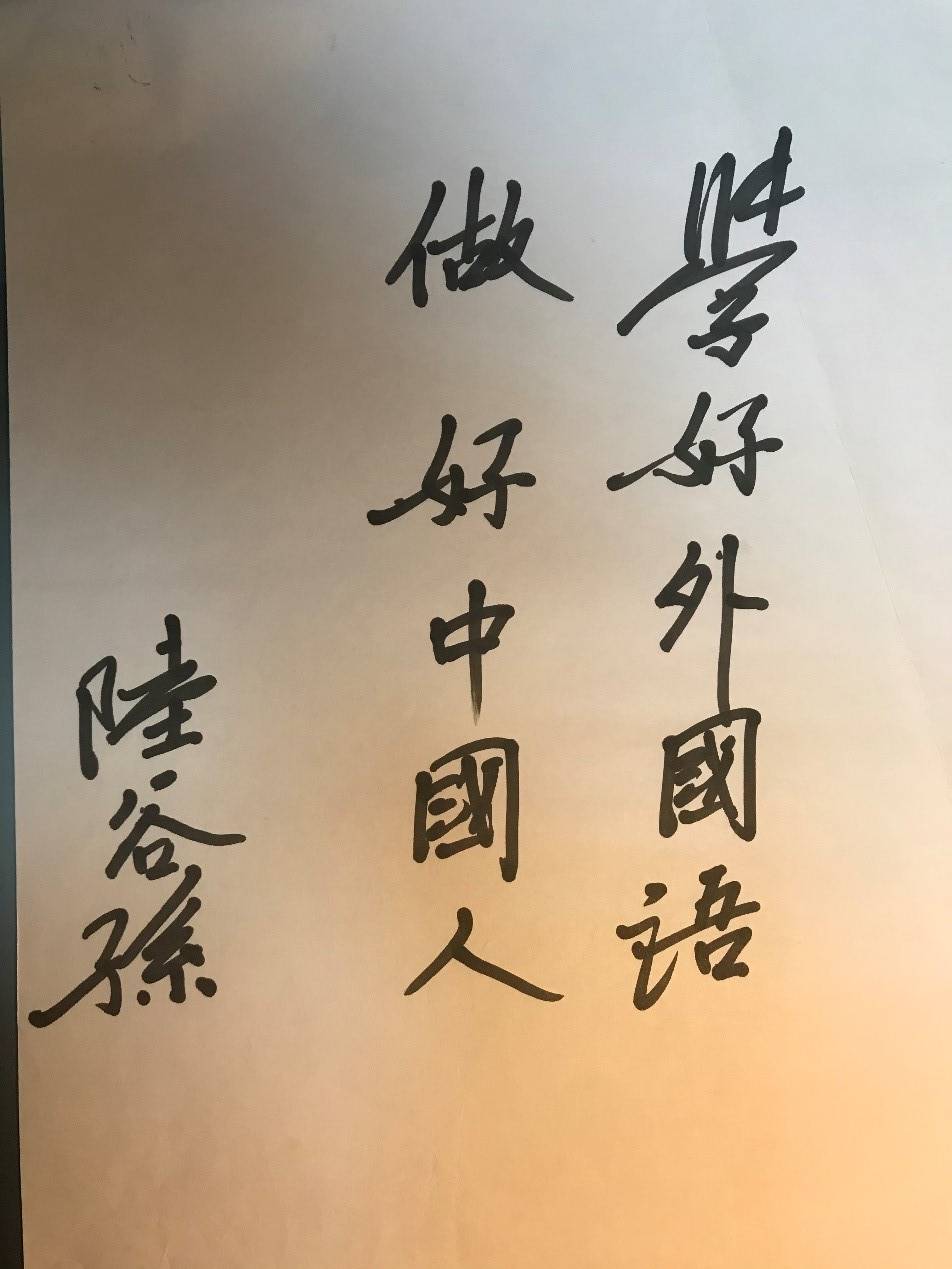 學好外國語
做好中國人
陸谷孫